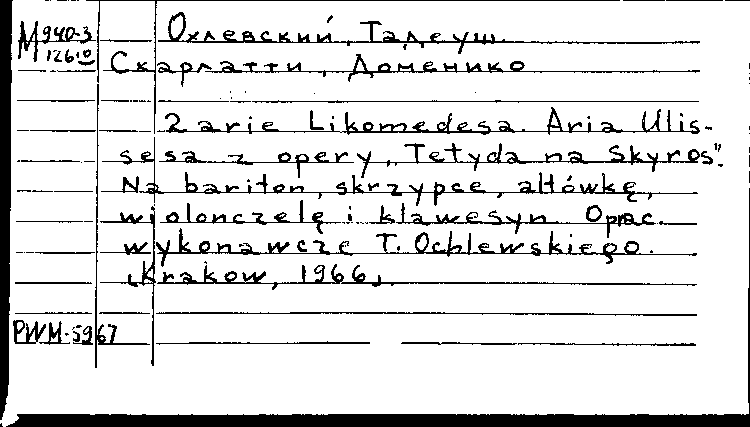 М 940-3
126.0
Охлевский, Тадеуш.
Скарлатти, Доменико
2 arie Likomedesa. Aria Ulis-
sesa z opery „Tetyda na Skyros".
Na bariton, skrzypce, altówkę,
wiolonczelę i klawesyn Oprac.
wykonawcze T. Ochlewskiego.
[Krakow, 1966].
PWM-5967